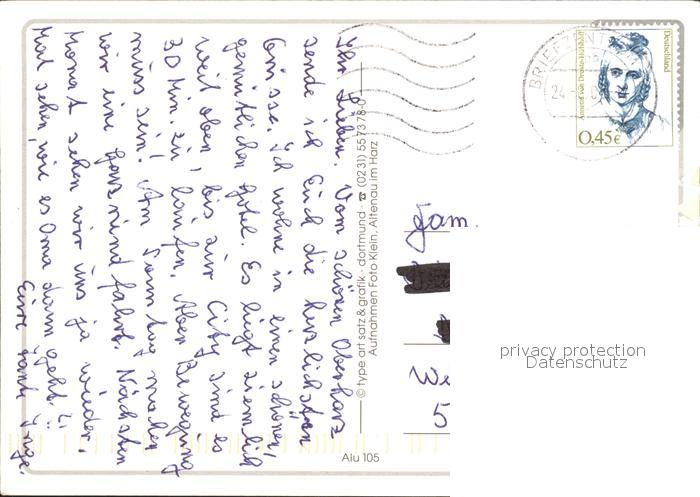 Ihr Lieben. Vom schönen Oberharz
sende ich Euch die herzlichsten
Grüsse. Ich wohne in einem schönen,
gemütlichen Hotel. Es liegt ziemlich
weit oben, bis zur City sind es
30 Min. zu laufen. Aber Bewegung
muss sein! Am Sonntag machen
wir eine Harzrundfahrt. Nächsten
Monat sehen wir uns ja wieder.
Mal sehen, wie es Oma dann geht?!
Eure Tante
© type art satz & grafik · dortmund · ☎ (0231) 557378-0
Aufnahmen Foto Klein, Altenau im Harz
Alu 105
BRIEFZENT
24.
Deutschland
Annette von Droste-Hülshoff
0,45€
Fam.
We
5
privacy protection
Datenschutz